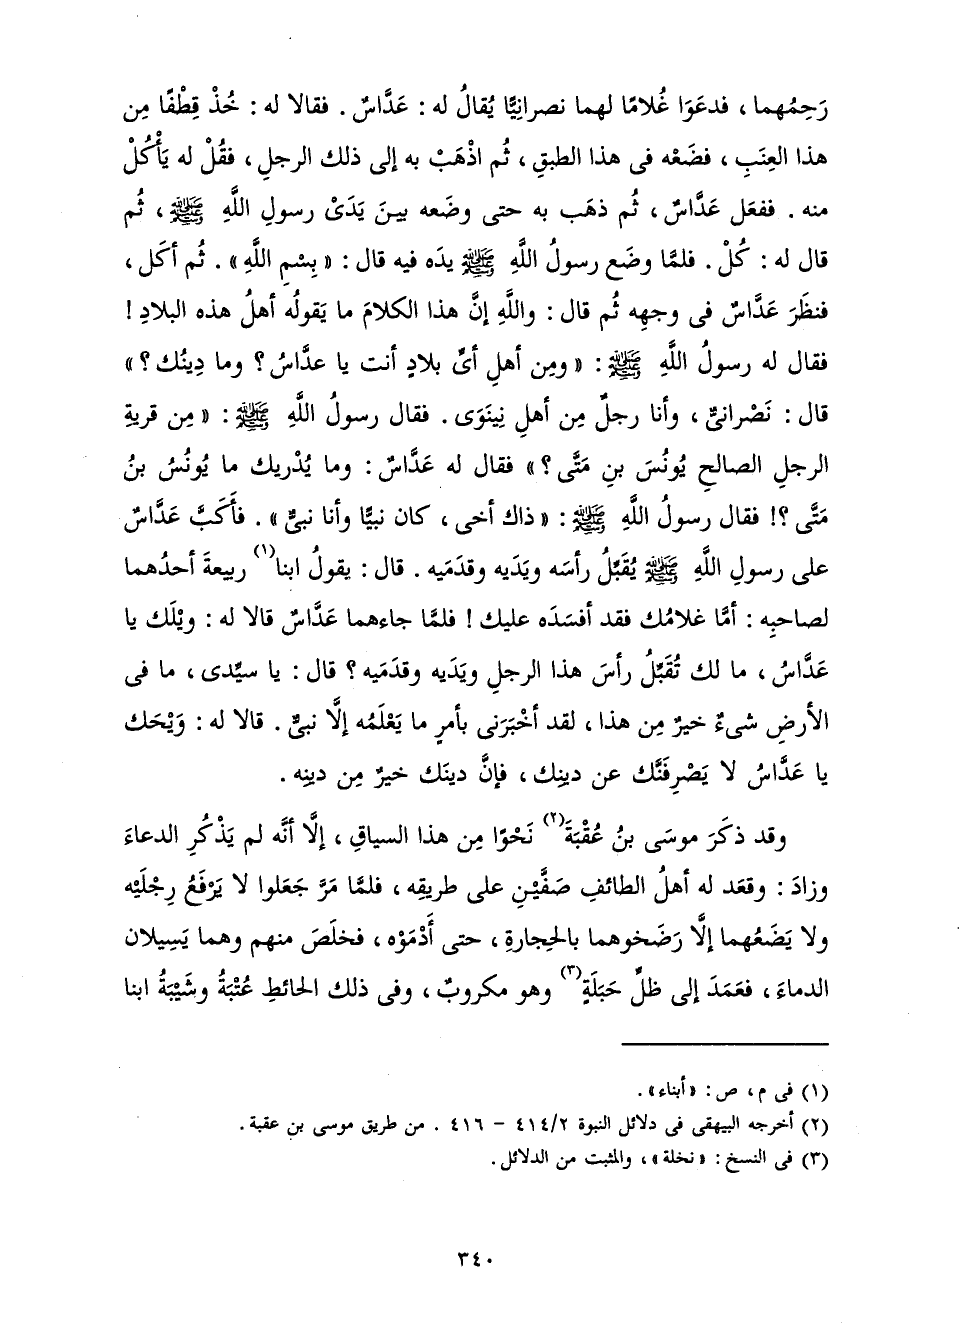 رَحِمُهما ، فدعَوَا غُلامًا لهما نصرانِيًّا يُقالُ له : عَدَّاسٌ . فقالا له : خُذْ قِطْفًا مِن
هذا العِنَبِ ، فضَعْه فى هذا الطبقِ ، ثُم اذْهَبْ به إلى ذلك الرجلِ ، فقُلْ له يَأْكُلْ
منه . ففعَل عَدَّاسٌ ، ثُم ذهَب به حتى وضَعه بينَ يَدَىْ رسولِ اللَّهِ ﷺ ، ثُم
قال له : كُلْ . فلمَّا وضَع رسولُ اللَّهِ ﷺ يدَه فيه قال : « بِسْمِ اللَّهِ » . ثُم أكَل ،
فنظَرَ عَدَّاسٌ فى وجهِه ثُم قال : واللَّهِ إنَّ هذا الكلامَ ما يَقولُه أهلُ هذه البلادِ !
فقال له رسولُ اللَّهِ ﷺ : « ومِن أهلِ أىِّ بلادٍ أنت يا عدَّاسُ ؟ وما دِينُك ؟ »
قال : نَصْرانىٌّ ، وأنا رجلٌ مِن أهلِ نِينَوَى . فقال رسولُ اللَّهِ ﷺ : « مِن قريةِ
الرجلِ الصالحِ يُونُسَ بنِ مَتَّى ؟ » فقال له عَدَّاسٌ : وما يُدْرِيك ما يُونُسُ بنُ
مَتَّى ؟! فقال رسولُ اللَّهِ ﷺ : « ذاك أخى ، كان نبيًّا وأنا نبىٌّ » . فأَكَبَّ عَدَّاسٌ
على رسولِ اللَّهِ ﷺ يُقَبِّلُ رأسَه ويَدَيه وقدَمَيه . قال : يقولُ ابنا(١) ربيعةَ أحدُهما
لصاحبِه : أمَّا غلامُك فقد أفسَدَه عليك ! فلمَّا جاءهما عَدَّاسٌ قالا له : ويْلَك يا
عَدَّاسُ ، ما لك تُقَبِّلُ رأسَ هذا الرجلِ ويَدَيه وقدَمَيه ؟ قال : يا سيِّدى ، ما فى
الأرضِ شىءٌ خيرٌ مِن هذا ، لقد أخْبَرَنى بأمرٍ ما يَعْلَمُه إلَّا نبىٌّ . قالا له : وَيْحَك
يا عَدَّاسُ لا يَصْرِفَنَّك عن دينِك ، فإنَّ دينَك خيرٌ مِن دينِه .
وقد ذكَرَ موسَى بنُ عُقْبَةَ(٢) نَحْوًا مِن هذا السياقِ ، إلَّا أنَّه لم يَذْكُرِ الدعاءَ
وزادَ : وقعَد له أهلُ الطائفِ صَفَّيْنِ على طريقِه ، فلمَّا مَرَّ جَعَلوا لا يَرْفَعُ رِجْلَيْه
ولا يَضَعُهما إلَّا رَضَخوهما بالحِجارةِ ، حتى أَدْمَوْه ، فخلَصَ منهم وهما يَسِيلان
الدماءَ ، فعَمَدَ إلى ظلِّ حَبَلَةٍ(٣) وهو مكروبٌ ، وفى ذلك الحائطِ عُتْبَةُ وشَيْبَةُ ابنا
(١) فى م ، ص : « أبناء » .
(٢) أخرجه البيهقى فى دلائل النبوة ٤١٤/٢ – ٤١٦ . من طريق موسى بن عقبة .
(٣) فى النسخ : « نخلة » ، والمثبت من الدلائل .
٣٤٠